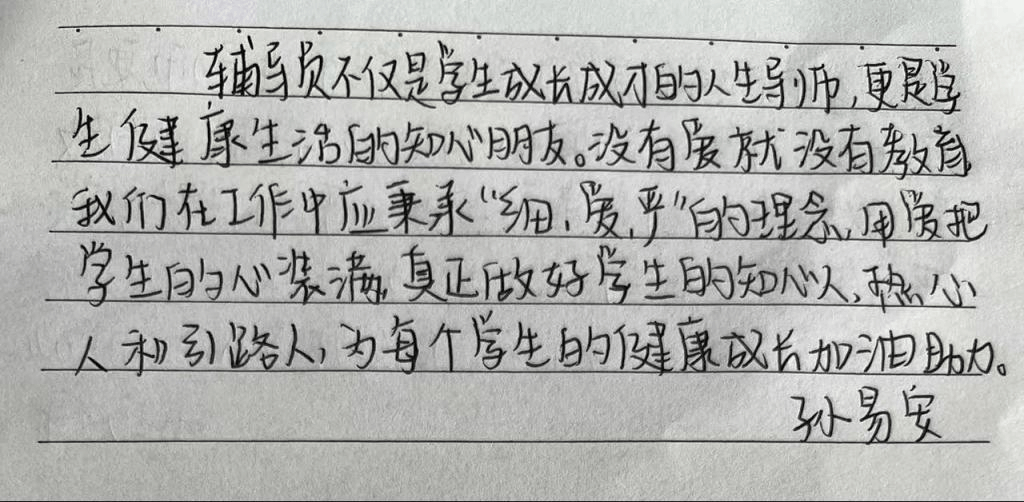 辅导员不仅是学生成长成才的人生导师,更是学
生健康生活的知心朋友。没有爱就没有教育
我们在工作中应秉承“细、爱、严”的理念,用爱把
学生的心装满,真正做好学生的知心人,热心
人和引路人,为每个学生的健康成长加油助力。
孙易安